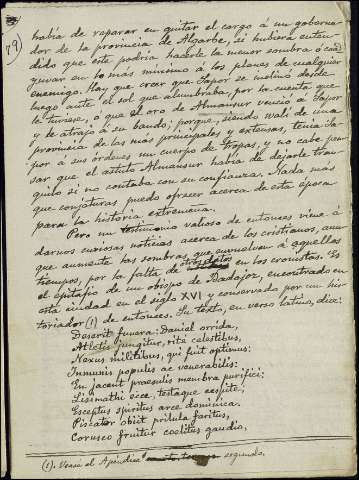 79)
había de reparar en quitar el cargo á un goberna-
dor de la provincia de Algarbe, si hubiera enten-
dido que este podría hacerle la menor sombra ó coad-
yuvar en lo más mínimo á los planes de cualquier
enemigo. Hay que creer que Sapor se inclinó desde
luego ante el sol que alumbraba, por la cuenta que
le tuviese, ó que el oro de Almansur venció á Sapor
y le atrajo á su bando; porque, siendo walí de una
provincia de las más principales y extensas, tenía Sa-
por á sus órdenes un cuerpo de tropas, y no cabe pen-
sar que el astuto Almansur había de dejarle tran-
quilo si no contaba con su confianza. Nada más
que conjeturas puedo ofrecer acerca de esta época
para la historia extremeña.
Pero un testimonio valioso de entonces viene á
darnos curiosas noticias acerca de los cristianos, aun-
que aumente las sombras que envuelven á aquellos
tiempos, por la falta de otros datos en los cronistas. Es
el epitafio de un obispo de Badajoz, encontrado en
esta ciudad en el siglo XVI y conservado por un his-
toriador (1) de entonces. Su texto, en verso latino, dice:
Deserit funera: Daniel orrida,
Atletis jungitur, rità celestibus,
Nexus militibus, qui fuit optimus:
Inmunis populis ac venerabilis:
En jacent praesulis membra purifici:
Lisimathi ecce, testaque cespite,
Esceptus spiritus arce dominica.
Piscator obiit prilula faritus,
Corusco fruitur coelitus gaudio,
(1). Vease el Apéndice segundo.